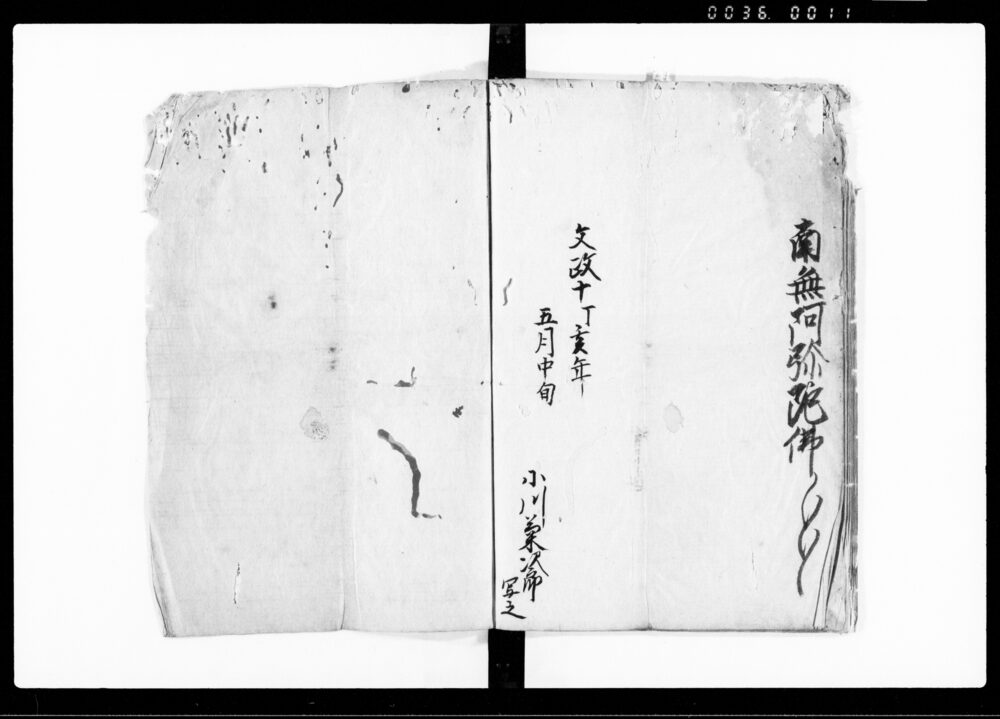 0036 0011
南無阿弥陀佛〳〵〳〵
文政十丁亥年
五月中旬
小川菊次郎
写之